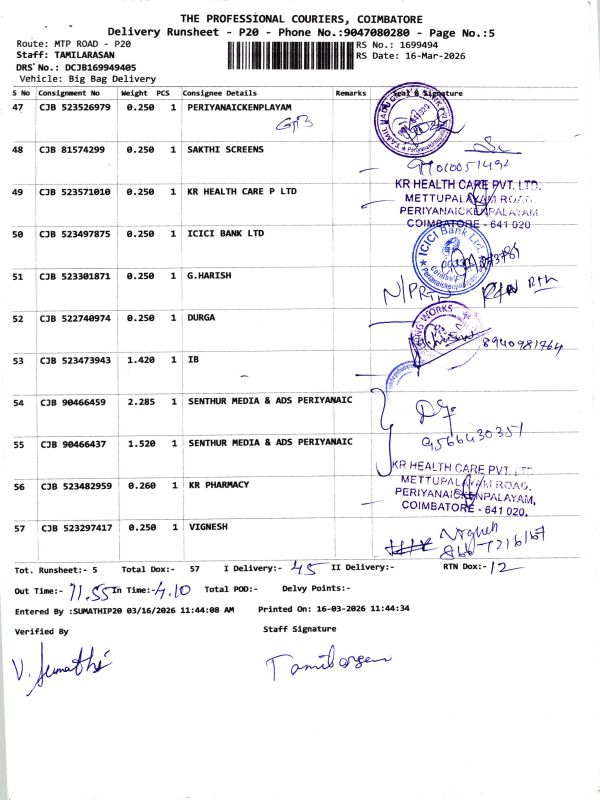 THE PROFESSIONAL COURIERS, COIMBATORE
Delivery Runsheet - P20 - Phone No.:9047080280 - Page No.:5
Route: MTP ROAD - P20 RS No.: 1699494
Staff: TAMILARASAN RS Date: 16-Mar-2026
DRS No.: DCJB169949405
Vehicle: Big Bag Delivery
S No Consignment No Weight PCS Consignee Details Remarks Seal & Signature
47 CJB 523526979 0.250 1 PERIYANAICKENPLAYAM
48 CJB 81574299 0.250 1 SAKTHI SCREENS
49 CJB 523571010 0.250 1 KR HEALTH CARE P LTD
KR HEALTH CARE PVT. LTD.
METTUPALAYAM ROAD,
PERIYANAICKENPALAYAM
COIMBATORE - 641 020
50 CJB 523497875 0.250 1 ICICI BANK LTD
ICICI Bank Ltd.
51 CJB 523301871 0.250 1 G.HARISH
52 CJB 522740974 0.250 1 DURGA
8940981764
53 CJB 523473943 1.420 1 IB
54 CJB 90466459 2.285 1 SENTHUR MEDIA & ADS PERIYANAIC
9566430351
55 CJB 90466437 1.520 1 SENTHUR MEDIA & ADS PERIYANAIC
56 CJB 523482959 0.260 1 KR PHARMACY
KR HEALTH CARE PVT. LTD.
METTUPALAYAM ROAD,
PERIYANAICKENPALAYAM,
COIMBATORE - 641 020.
57 CJB 523297417 0.250 1 VIGNESH
Vignesh
Tot. Runsheet:- 5 Total Dox:- 57 I Delivery:- 45 II Delivery:- RTN Dox:- 12
Out Time:- 11.55 In Time:- 4.10 Total POD:- Delvy Points:-
Entered By :SUMATHIP20 03/16/2026 11:44:08 AM Printed On: 16-03-2026 11:44:34
Verified By Staff Signature
V. Sumathi Tamilarasan